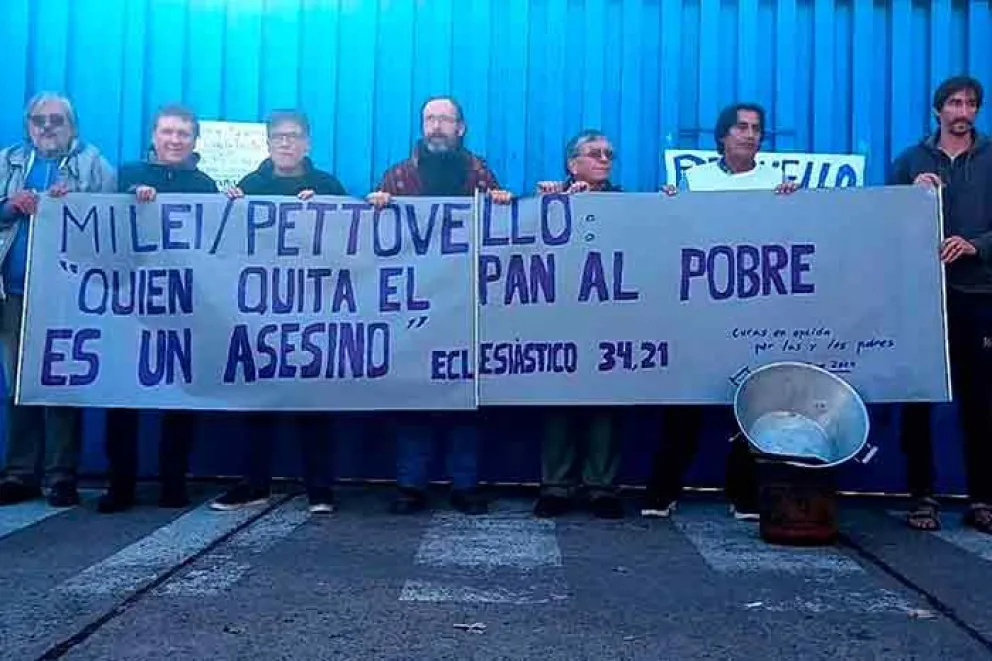 MILEI/PETTOVELLO:
"QUIEN QUITA EL PAN AL POBRE
ES UN ASESINO" ECLESIÁSTICO 34,21
Curas en opción
por las y los pobres
VELLO